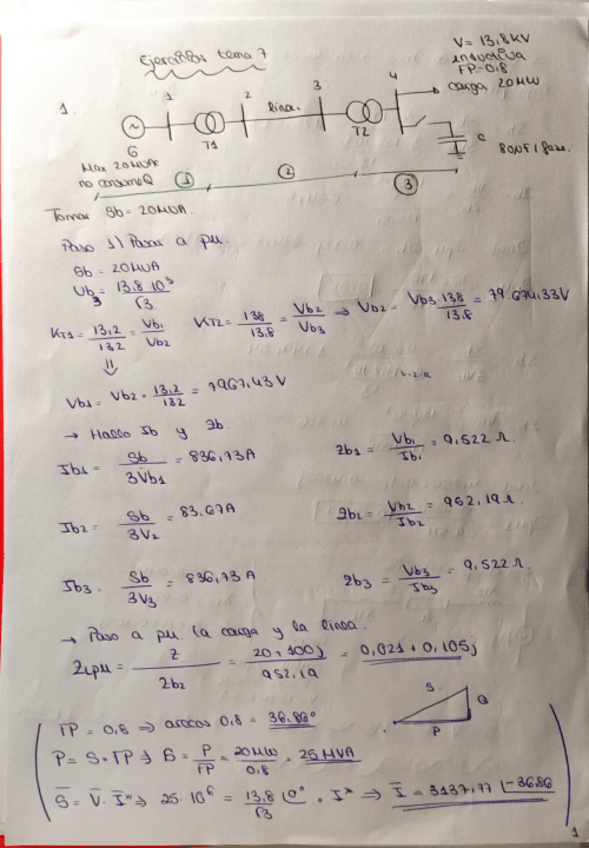 Ejercicios tema 7
V= 13,8KV
inductiva
FP=0.8
Carga 20MW
1.
1 2 línea. 3 4
G T1 T2 C
80NF/fase.
Max 20MVAr
no consume Q
1 2 3
Tomar Sb = 20MVA.
Paso 1) Pasar a pu.
Sb = 20MVA
Ub3 = 13.8 10³ / √3.
KT1 = 13,2/132 = Vb1/Vb2 KT2 = 138/13,8 = Vb2/Vb3 ⇒ Vb2 = Vb3·138/13,8 = 79.674.33V
⇓
Vb1 = Vb2 · 13,2/132 = 7967,43 V
→ Hallo Ib y Zb.
Ib1 = Sb/3Vb1 = 836,73A Zb1 = Vb1/Ib1 = 9,522 Ω.
Ib2 = Sb/3V2 = 83.67A Zb2 = Vb2/Ib2 = 952,19 Ω.
Ib3. Sb/3V3 = 836,73 A Zb3 = Vb3/Ib3 = 9,522 Ω.
→ Paso a pu. la carga y la línea.
ZLpu = Z/Zb2 = 20+100j/952.19 = 0,021 + 0,105j
S Q P
FP = 0,8 ⇒ arccos 0,8 = 36.86°
P = S·FP ⇒ S = P/FP = 20MW/0.8 = 25 MVA
S = V·I* ⇒ 25·10⁶ = 13,8/√3 ∠0° · I* ⇒ I = 3137,77 ∠-36,86
1